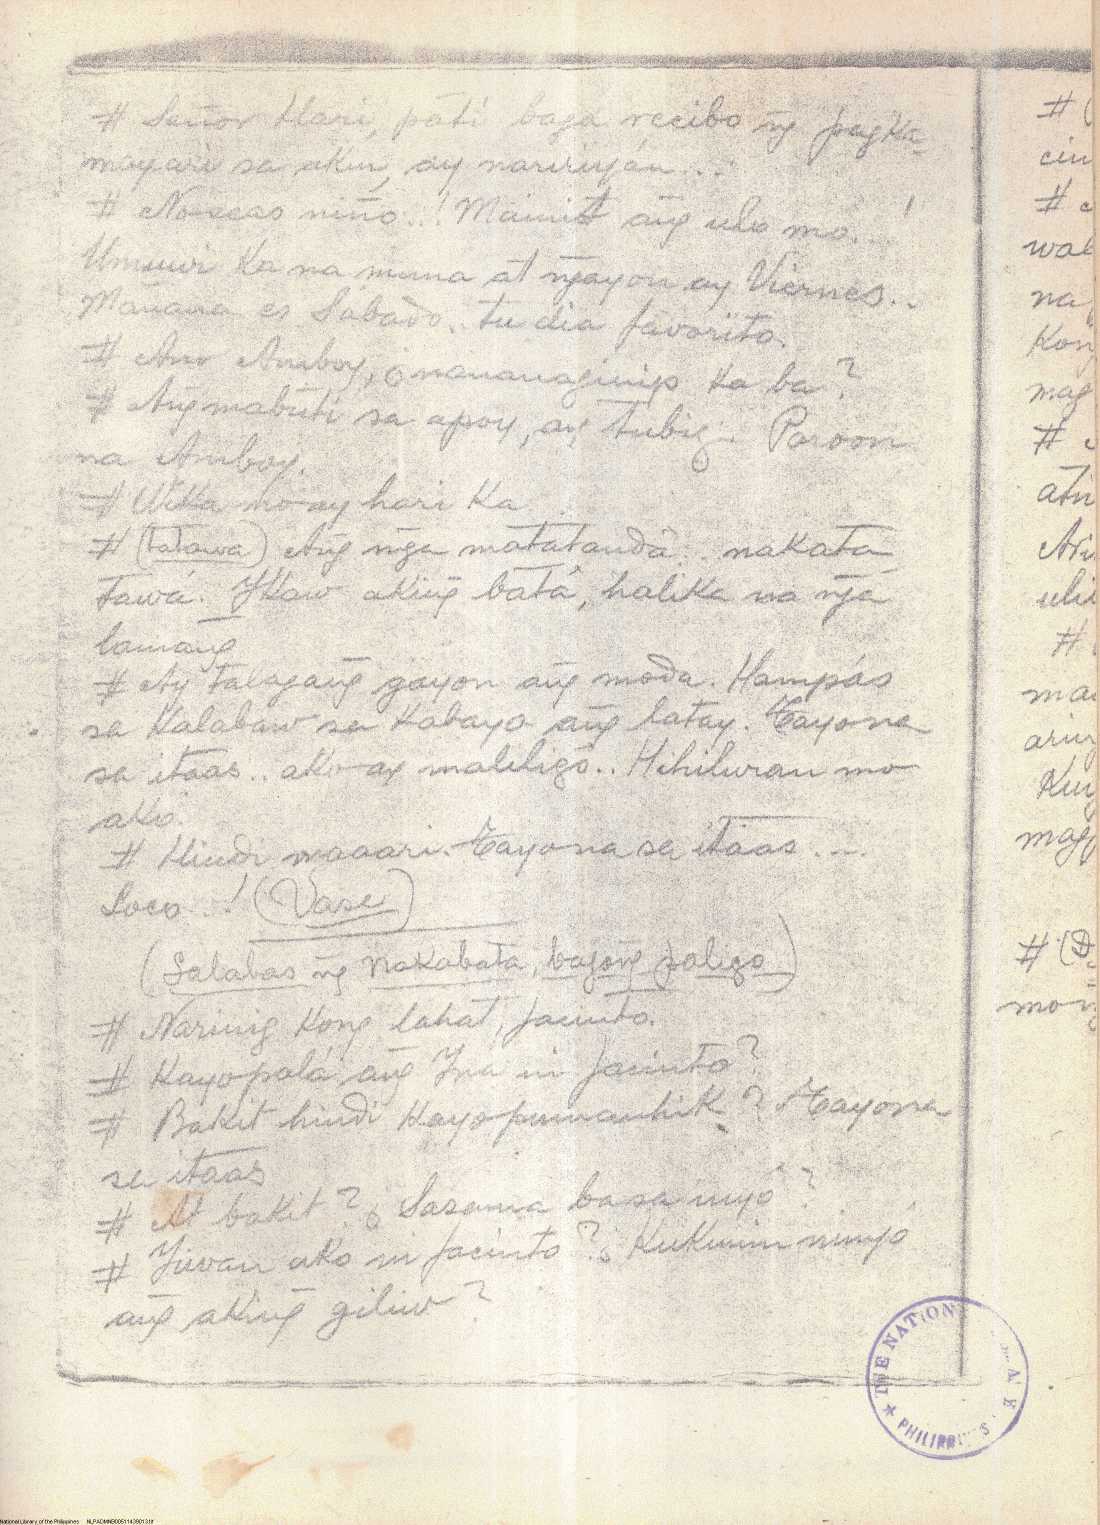 # Señor Hari, pati baga recibo ng pagka-
mayari sa akin, ay naririyán...
# No seas niño..! Mainit ang ulo mo...!
Umuwi ka na muna at ngayon ay Viernes..
Mañana es Sabado.. tu dia favorito.
# Ano Amboy, ¿nananaginip ka ba?
# Ang mabuti sa apoy, ay tubig... Paroon
na Amboy.
# Wika mo ay hari ka
# (tatawa) Ang nga matatandâ... nakata-
tawá. Ikaw aking batà, halika na nga
lamang
# Ay talagang gayon ang moda. Hampás
sa kalabaw sa kabayo ang latay. Tayo na
sa itaas.. ako ay maliligo.. Hihiluran mo
ako.
# Hindi maaari. Tayo na sa itaas ....
Loco..! (Vase)
(Lalabas ng nakabata, bagong paligo)
# Narinig kong lahat, Jacinto.
# Kayo palá ang Ina ni Jacinto?
# Bakit hindi kayo pumanhik? Tayo na
sa itaas
# At bakit? ¿Sasama ba sa inyo?
# Iiwan ako ni Jacinto? ¿Kukunin ninyó
ang aking giliw?
# (
cin
#
wal
na
Kon
mag
#
atin
Ari
uli
#
ma
arin
Kun
mag
# (D
mo
THE NATION
PHILIPPINES
National Library of the Philippines NLPADMNB00511439013.tif